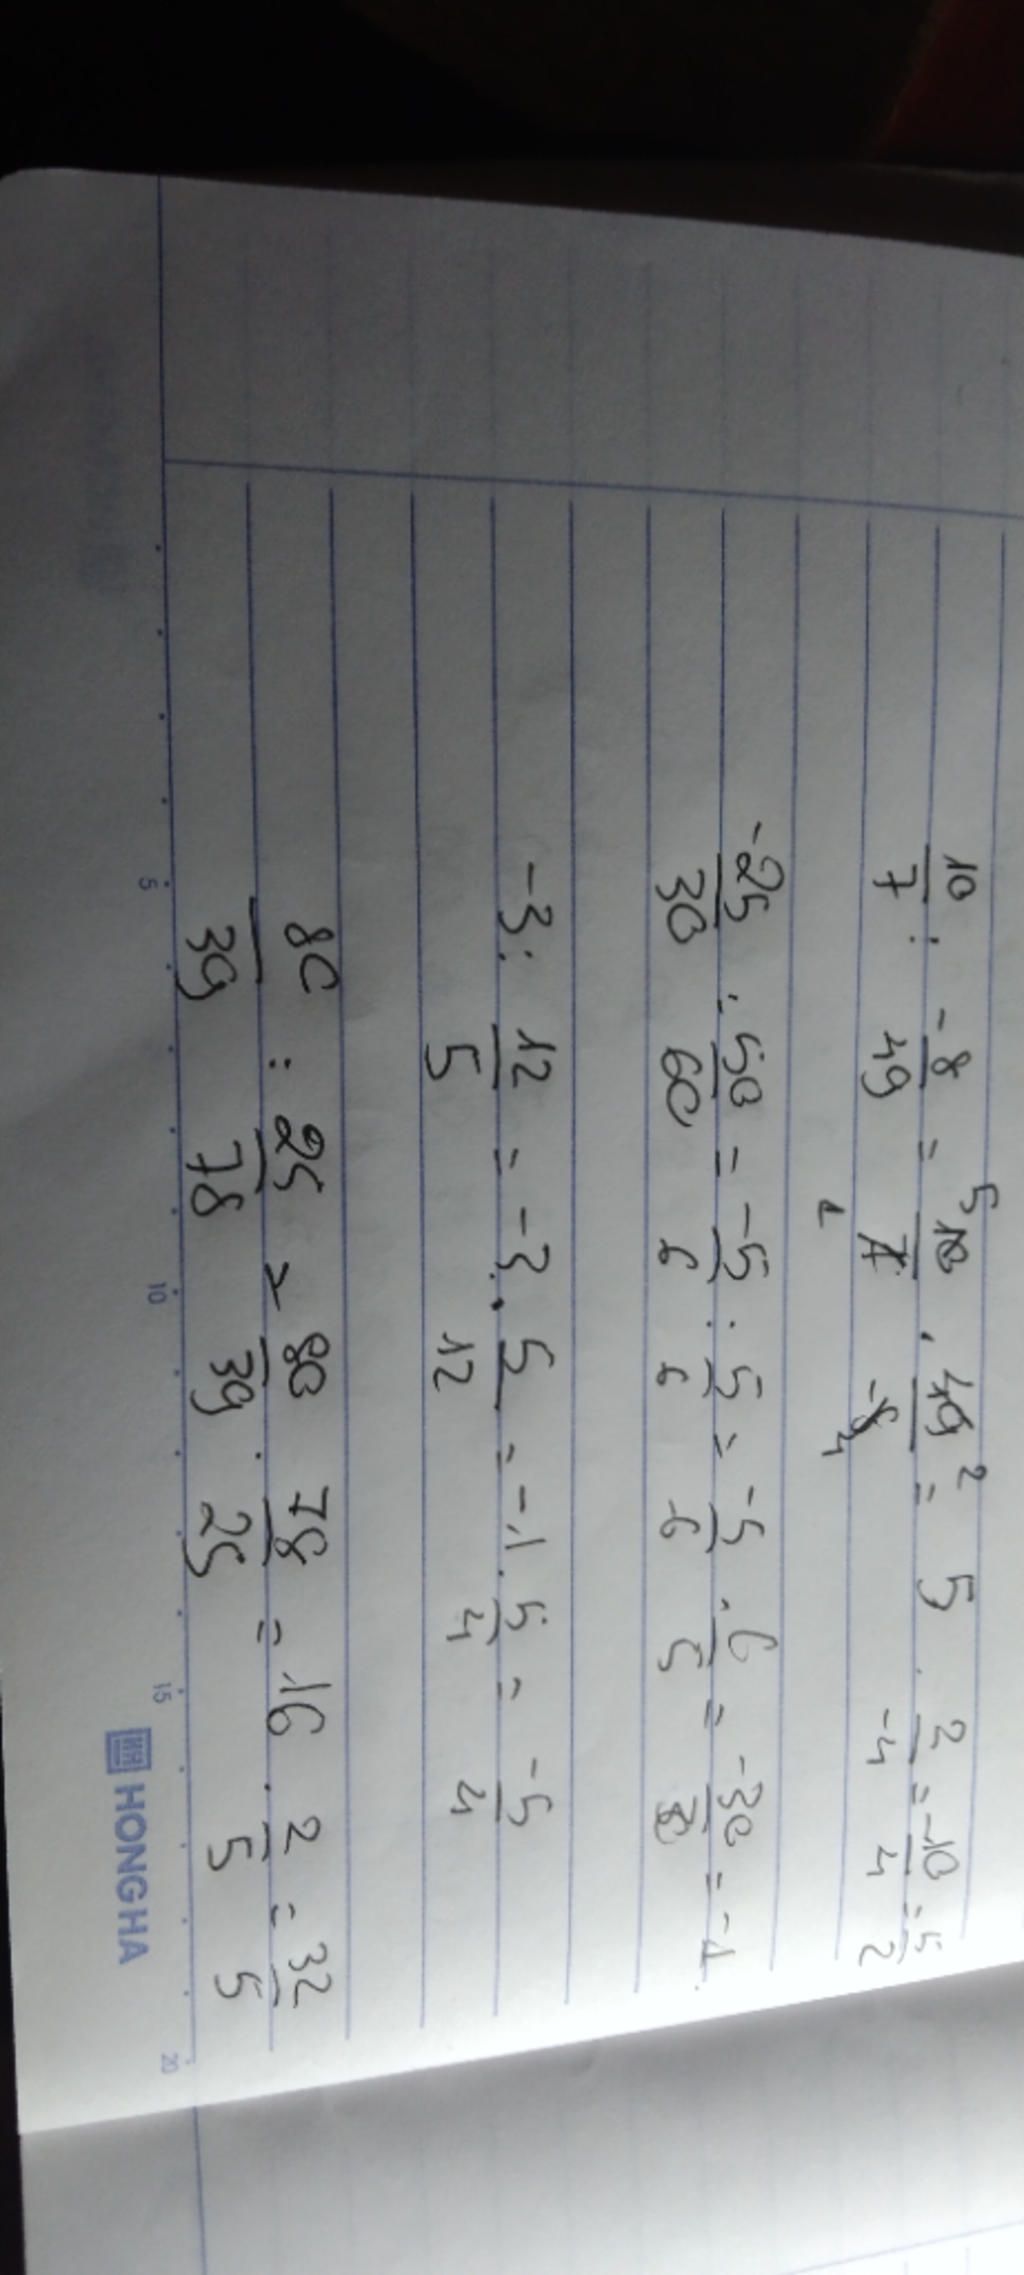 10/7 : -8/49 = 5 10/7 1 . 49/-8 2 4 = 5 . 2/-4 = -10/4 = -5/2
-25/30 : 50/60 = -5/6 : 5/6 = -5/6 . 6/5 = -30/30 = -1
-3 : 12/5 = -3 . 5/12 = -1 . 5/4 = -5/4
80/39 : 25/78 = 80/39 . 78/25 = 16 . 2/5 = 32/5
5 10 15 20
HONG HA